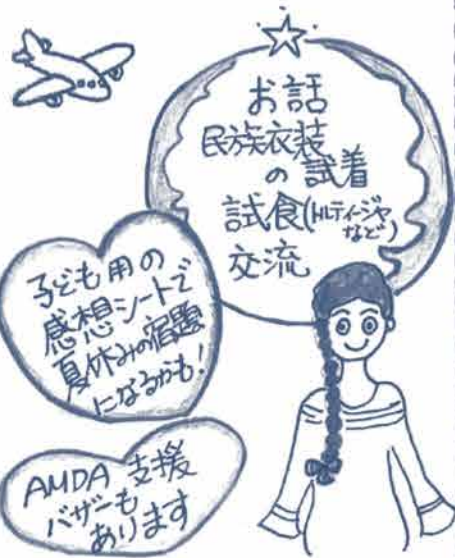 お話
民族衣装
の試着
試食(トルティージャ
など)
交流
子ども用の
感想シートで
夏休みの宿題
になるかも!
AMDA 支援
バザーも
あります